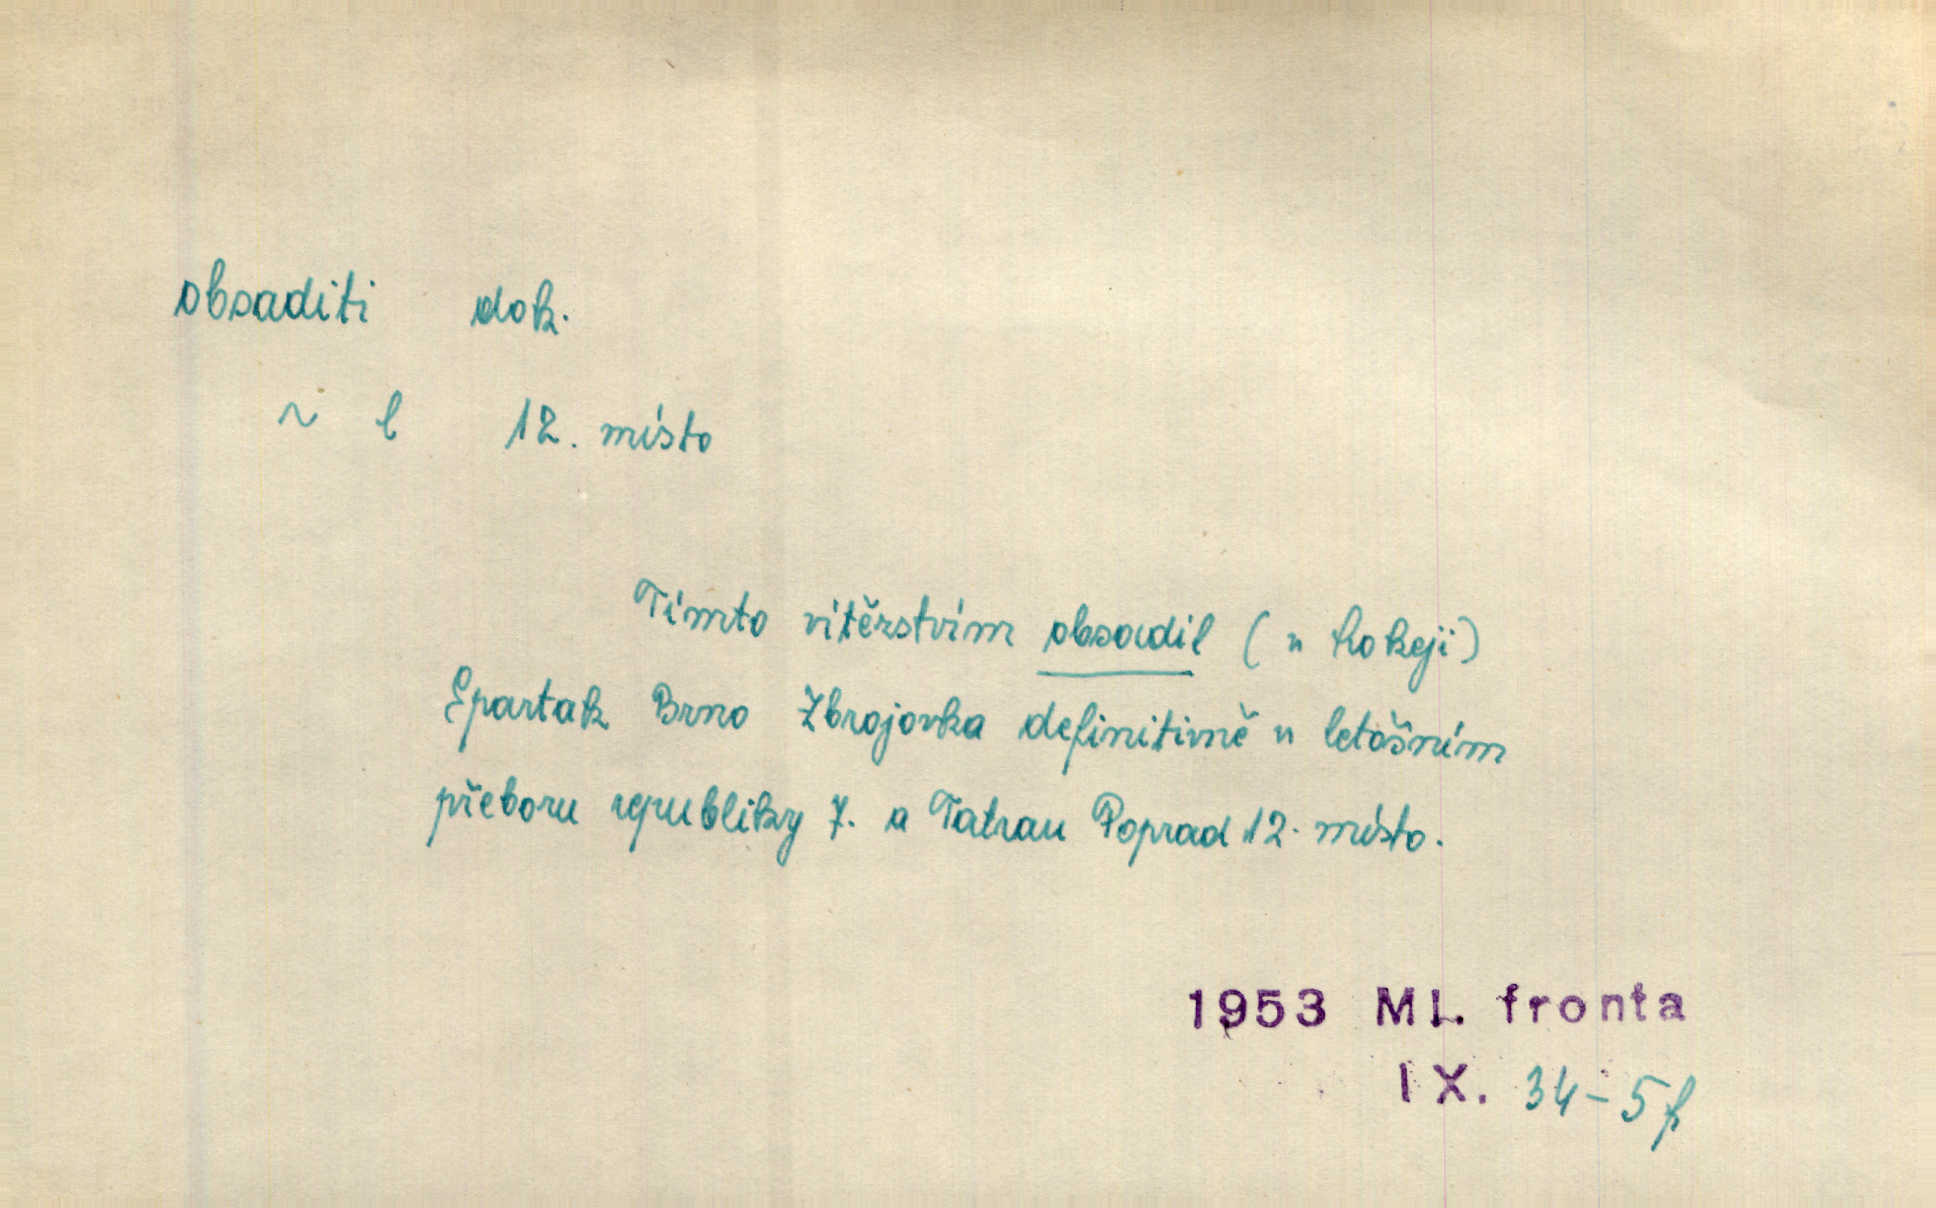 obsaditi dok.
~ l 12. místo
Tímto vítězstvím obsadil (v hokeji)
Spartak Brno Zbrojovka definitivně v letošním
přeboru republiky 7. a Tatran Poprad 12. místo.
1953 Ml. fronta
IX. 34-5f